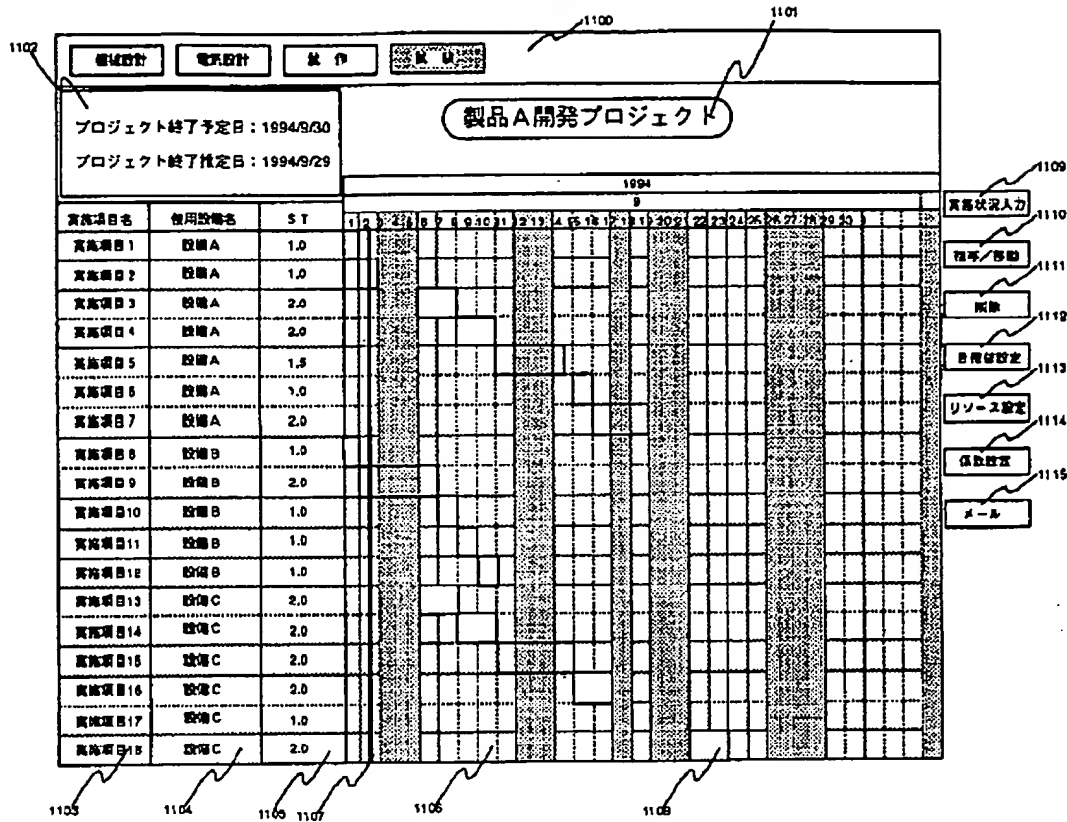 1100
1101
1102
機械設計 電気設計 試作 試験
プロジェクト終了予定日：1994/9/30
プロジェクト終了推定日：1994/9/29
製品A開発プロジェクト
1994
9
実施項目名 使用設備名 ST
実施項目1 設備A 1.0
実施項目2 設備A 1.0
実施項目3 設備A 2.0
実施項目4 設備A 2.0
実施項目5 設備A 1.5
実施項目6 設備A
実施項目7 設備A 2.0
実施項目8 設備B 1.0
実施項目9 設備B 2.0
実施項目10 設備B 1.0
実施項目11 設備B 1.0
実施項目12 設備B 1.0
実施項目13 設備C 2.0
実施項目14 設備C 2.0
実施項目15 設備C 2.0
実施項目16 設備C 2.0
実施項目17 設備C 1.0
実施項目18 設備C 2.0
1109
実施状況入力
1110
1111
解除
1112
目標値設定
1113
リソース設定
1114
係数設定
1115
メール
1103 1104 1105 1107 1106 1108